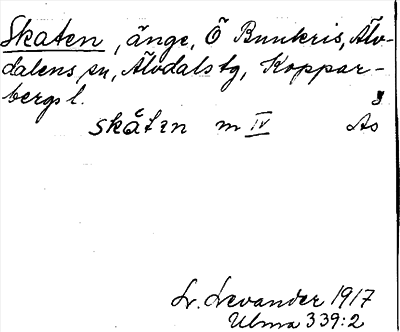 Skaten, änge, Ö Bunkris, Älv-
dalens sn, Älvdals tg, Koppar-
bergs l.
skåtən m IV As
L. Levander 1917
Ulma 339:2